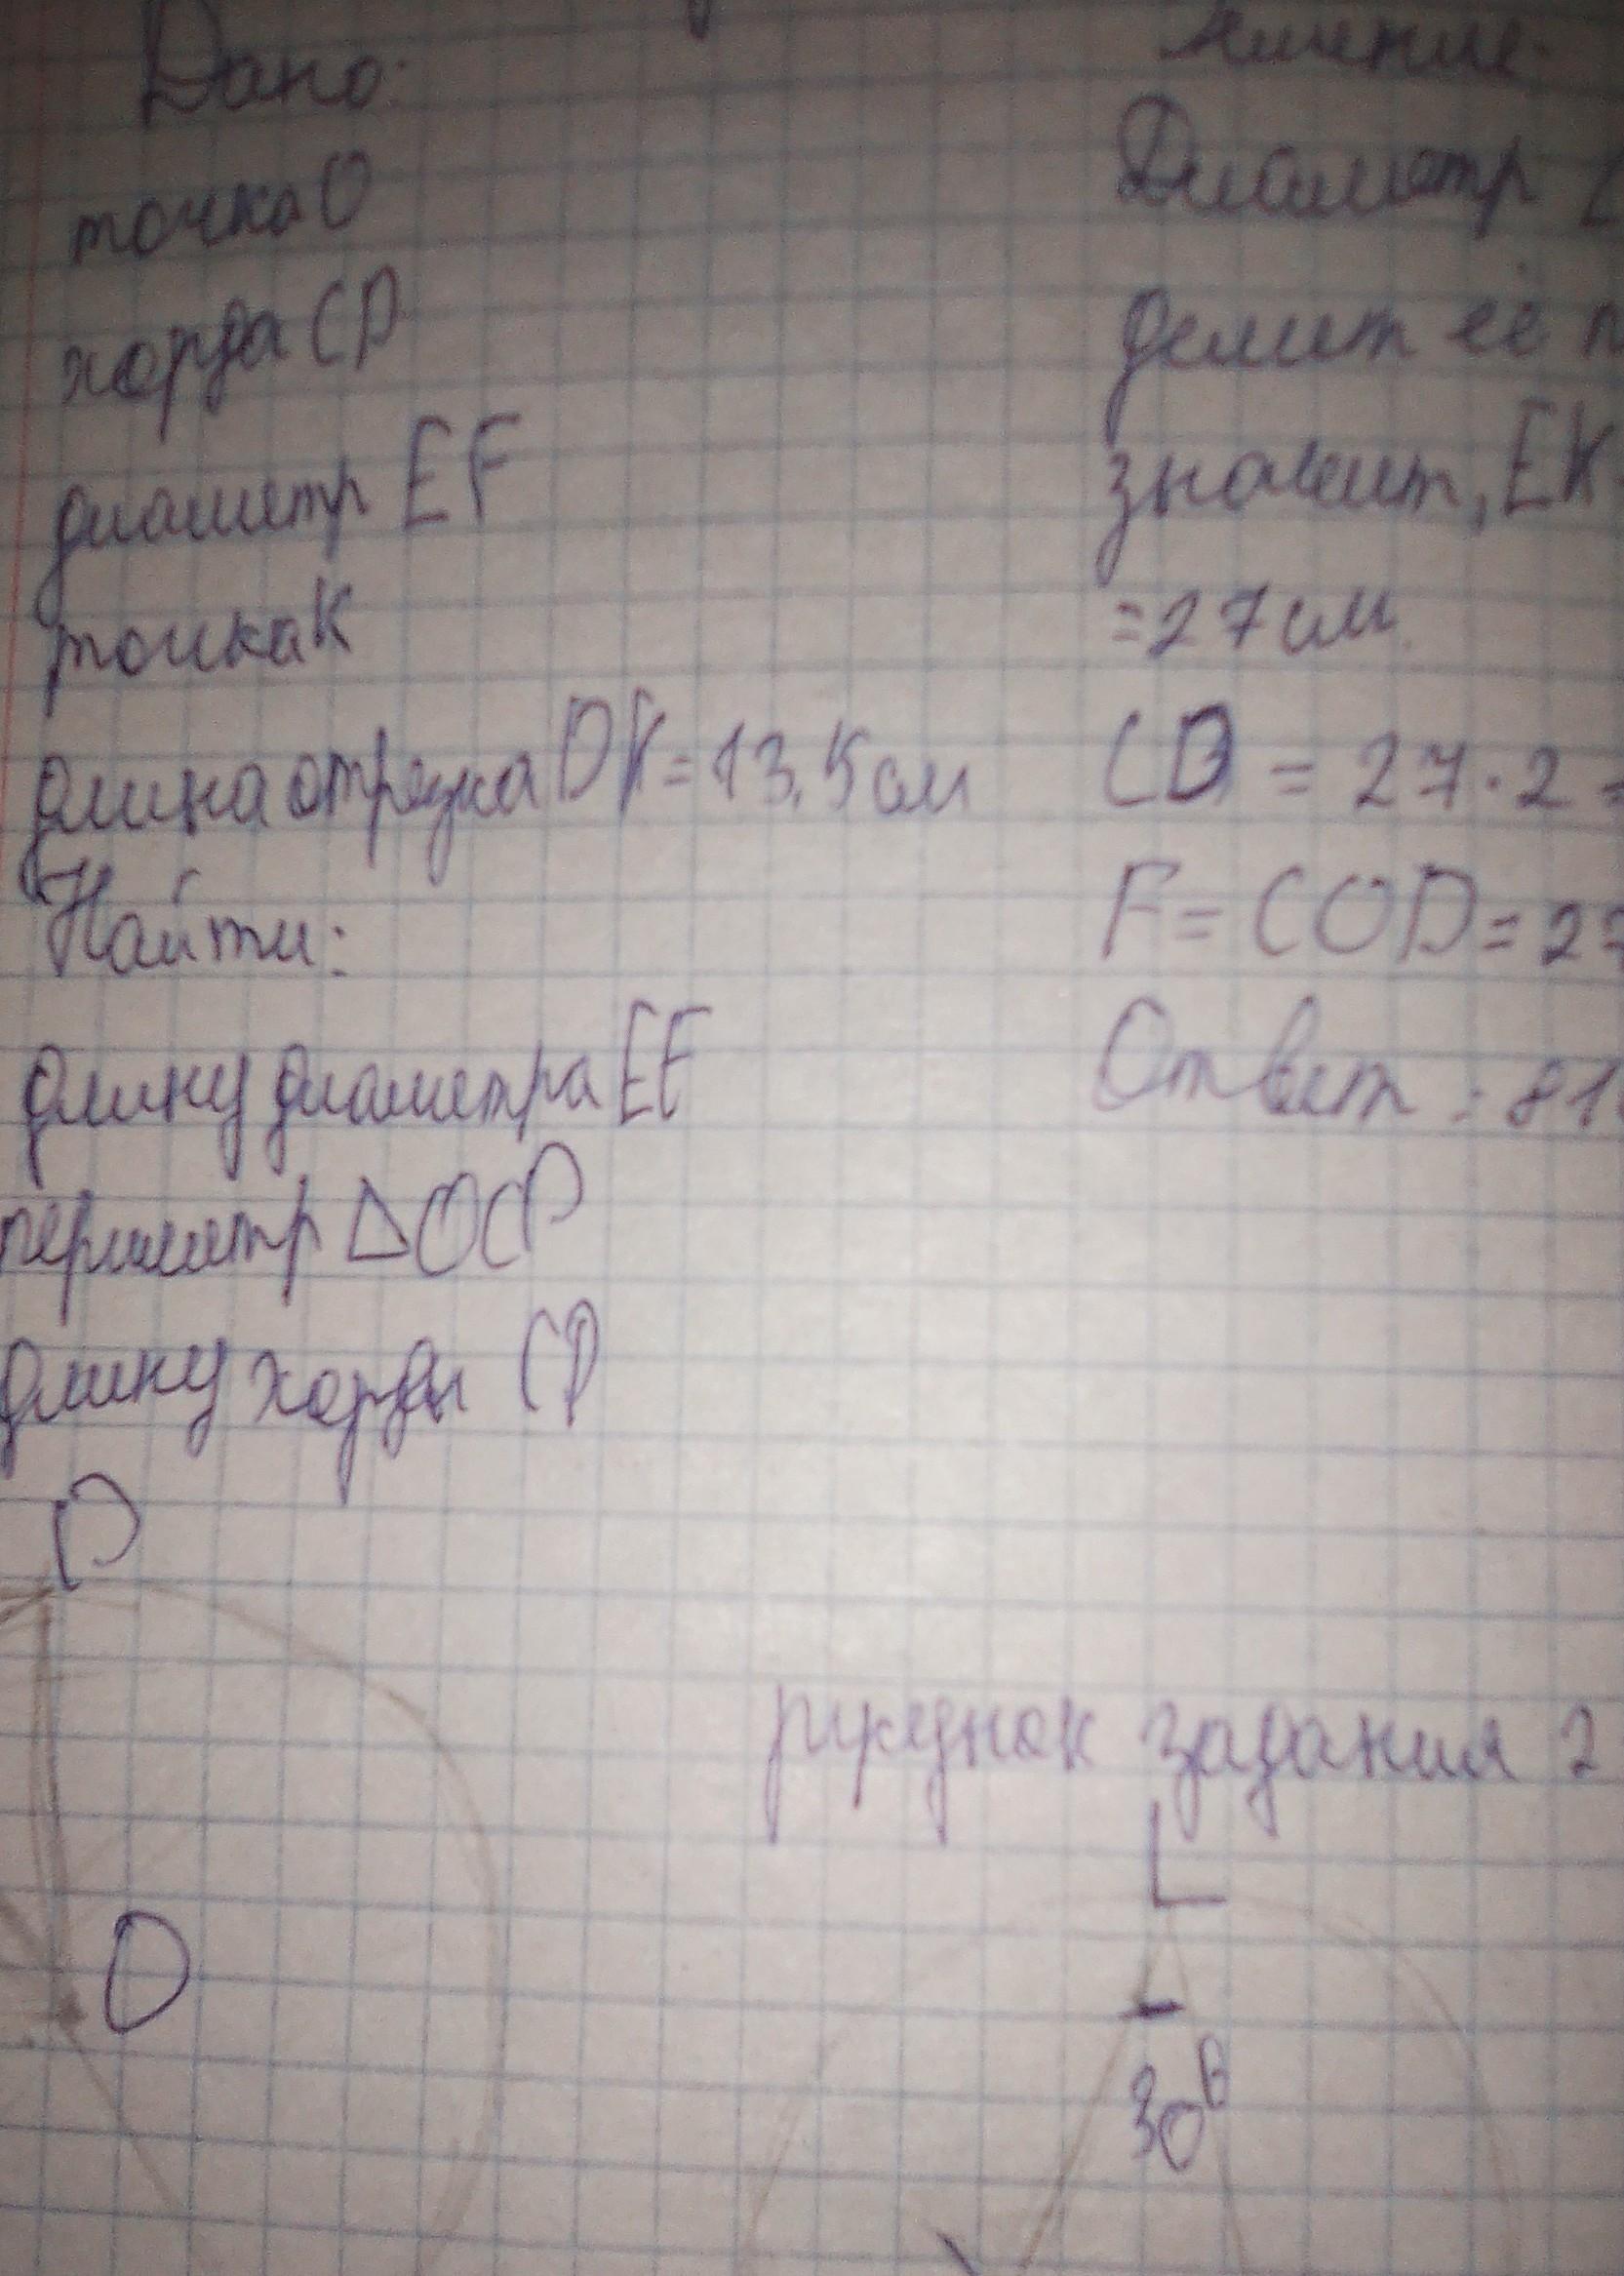 Дано:
точка О
хорда CD
диаметр EF
точка K
длина отрезка DK = 13.5 см
Найти:
длину диаметра EF
периметр △OCD
длину хорды CD
Диаметр
делит её п
значит, EK
= 27 см
CD = 27 · 2 =
F = COD = 27
Ответ : 81
D
O
задания 2
L
30